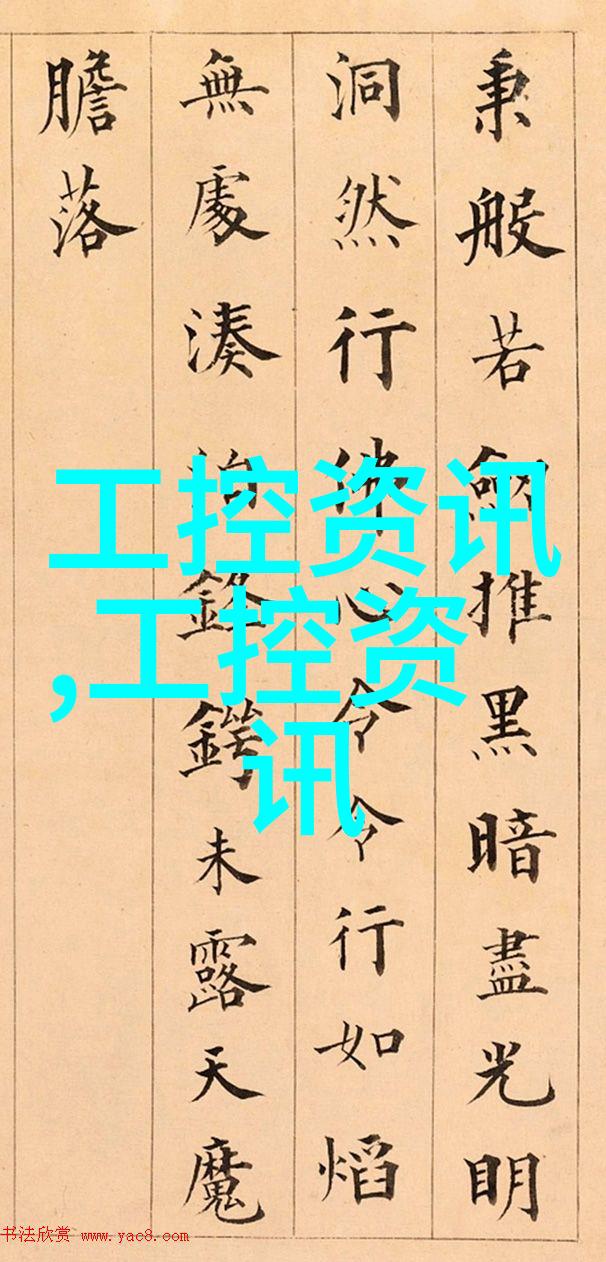 秉般若劍推黑暗盡光明
洞然行佛心令令行如熖
無處湊泊鋒鍔未露天魔
膽落
工控资讯
,工控资
讯
书法欣赏 www.yac8.com